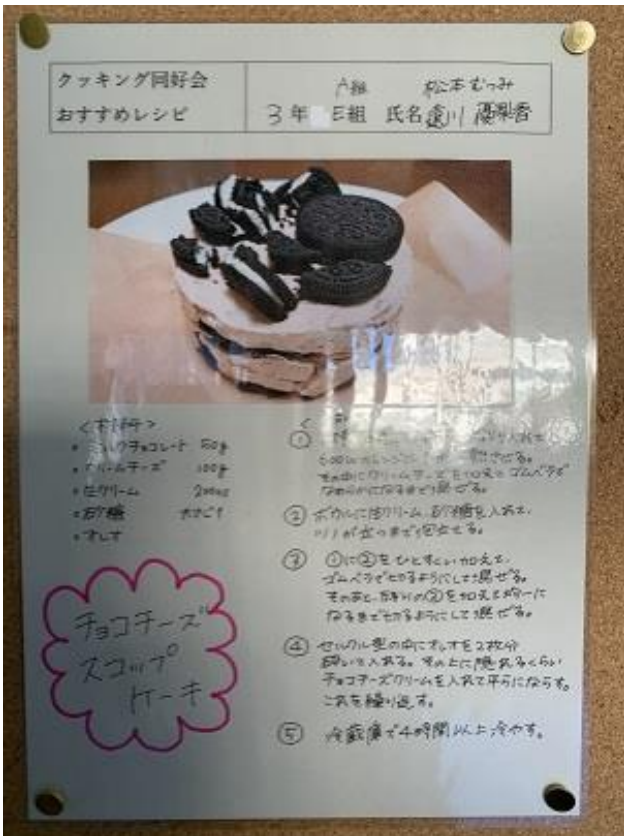 クッキング同好会
おすすめレシピ
A組 松本むつみ
3年 E組 氏名 川 優梨香
<材料>
・ミルクチョコレート 50g
・クリームチーズ 100g
・生クリーム 200cc
・砂糖 大さじ1
・オレオ
チョコチーズ
スコップ
ケーキ
①
入れて
600W
その中にクリームチーズを加えてゴムベラで
なめらかになるまで混ぜる。
② ボウルに生クリーム、砂糖を入れて、
ツノが立つまで泡立てる。
③ ①に②をひとすくい加えて、
ゴムベラで切るようにして混ぜる。
そのあと、残りの②を加えて均一に
なるまで切るようにして混ぜる。
④ セルクル型の中にオレオを2枚分
砕いて入れる。その上に隠れるくらい
チョコチーズクリームを入れて平らにならす。
これを繰り返す。
⑤ 冷蔵庫で4時間以上冷やす。